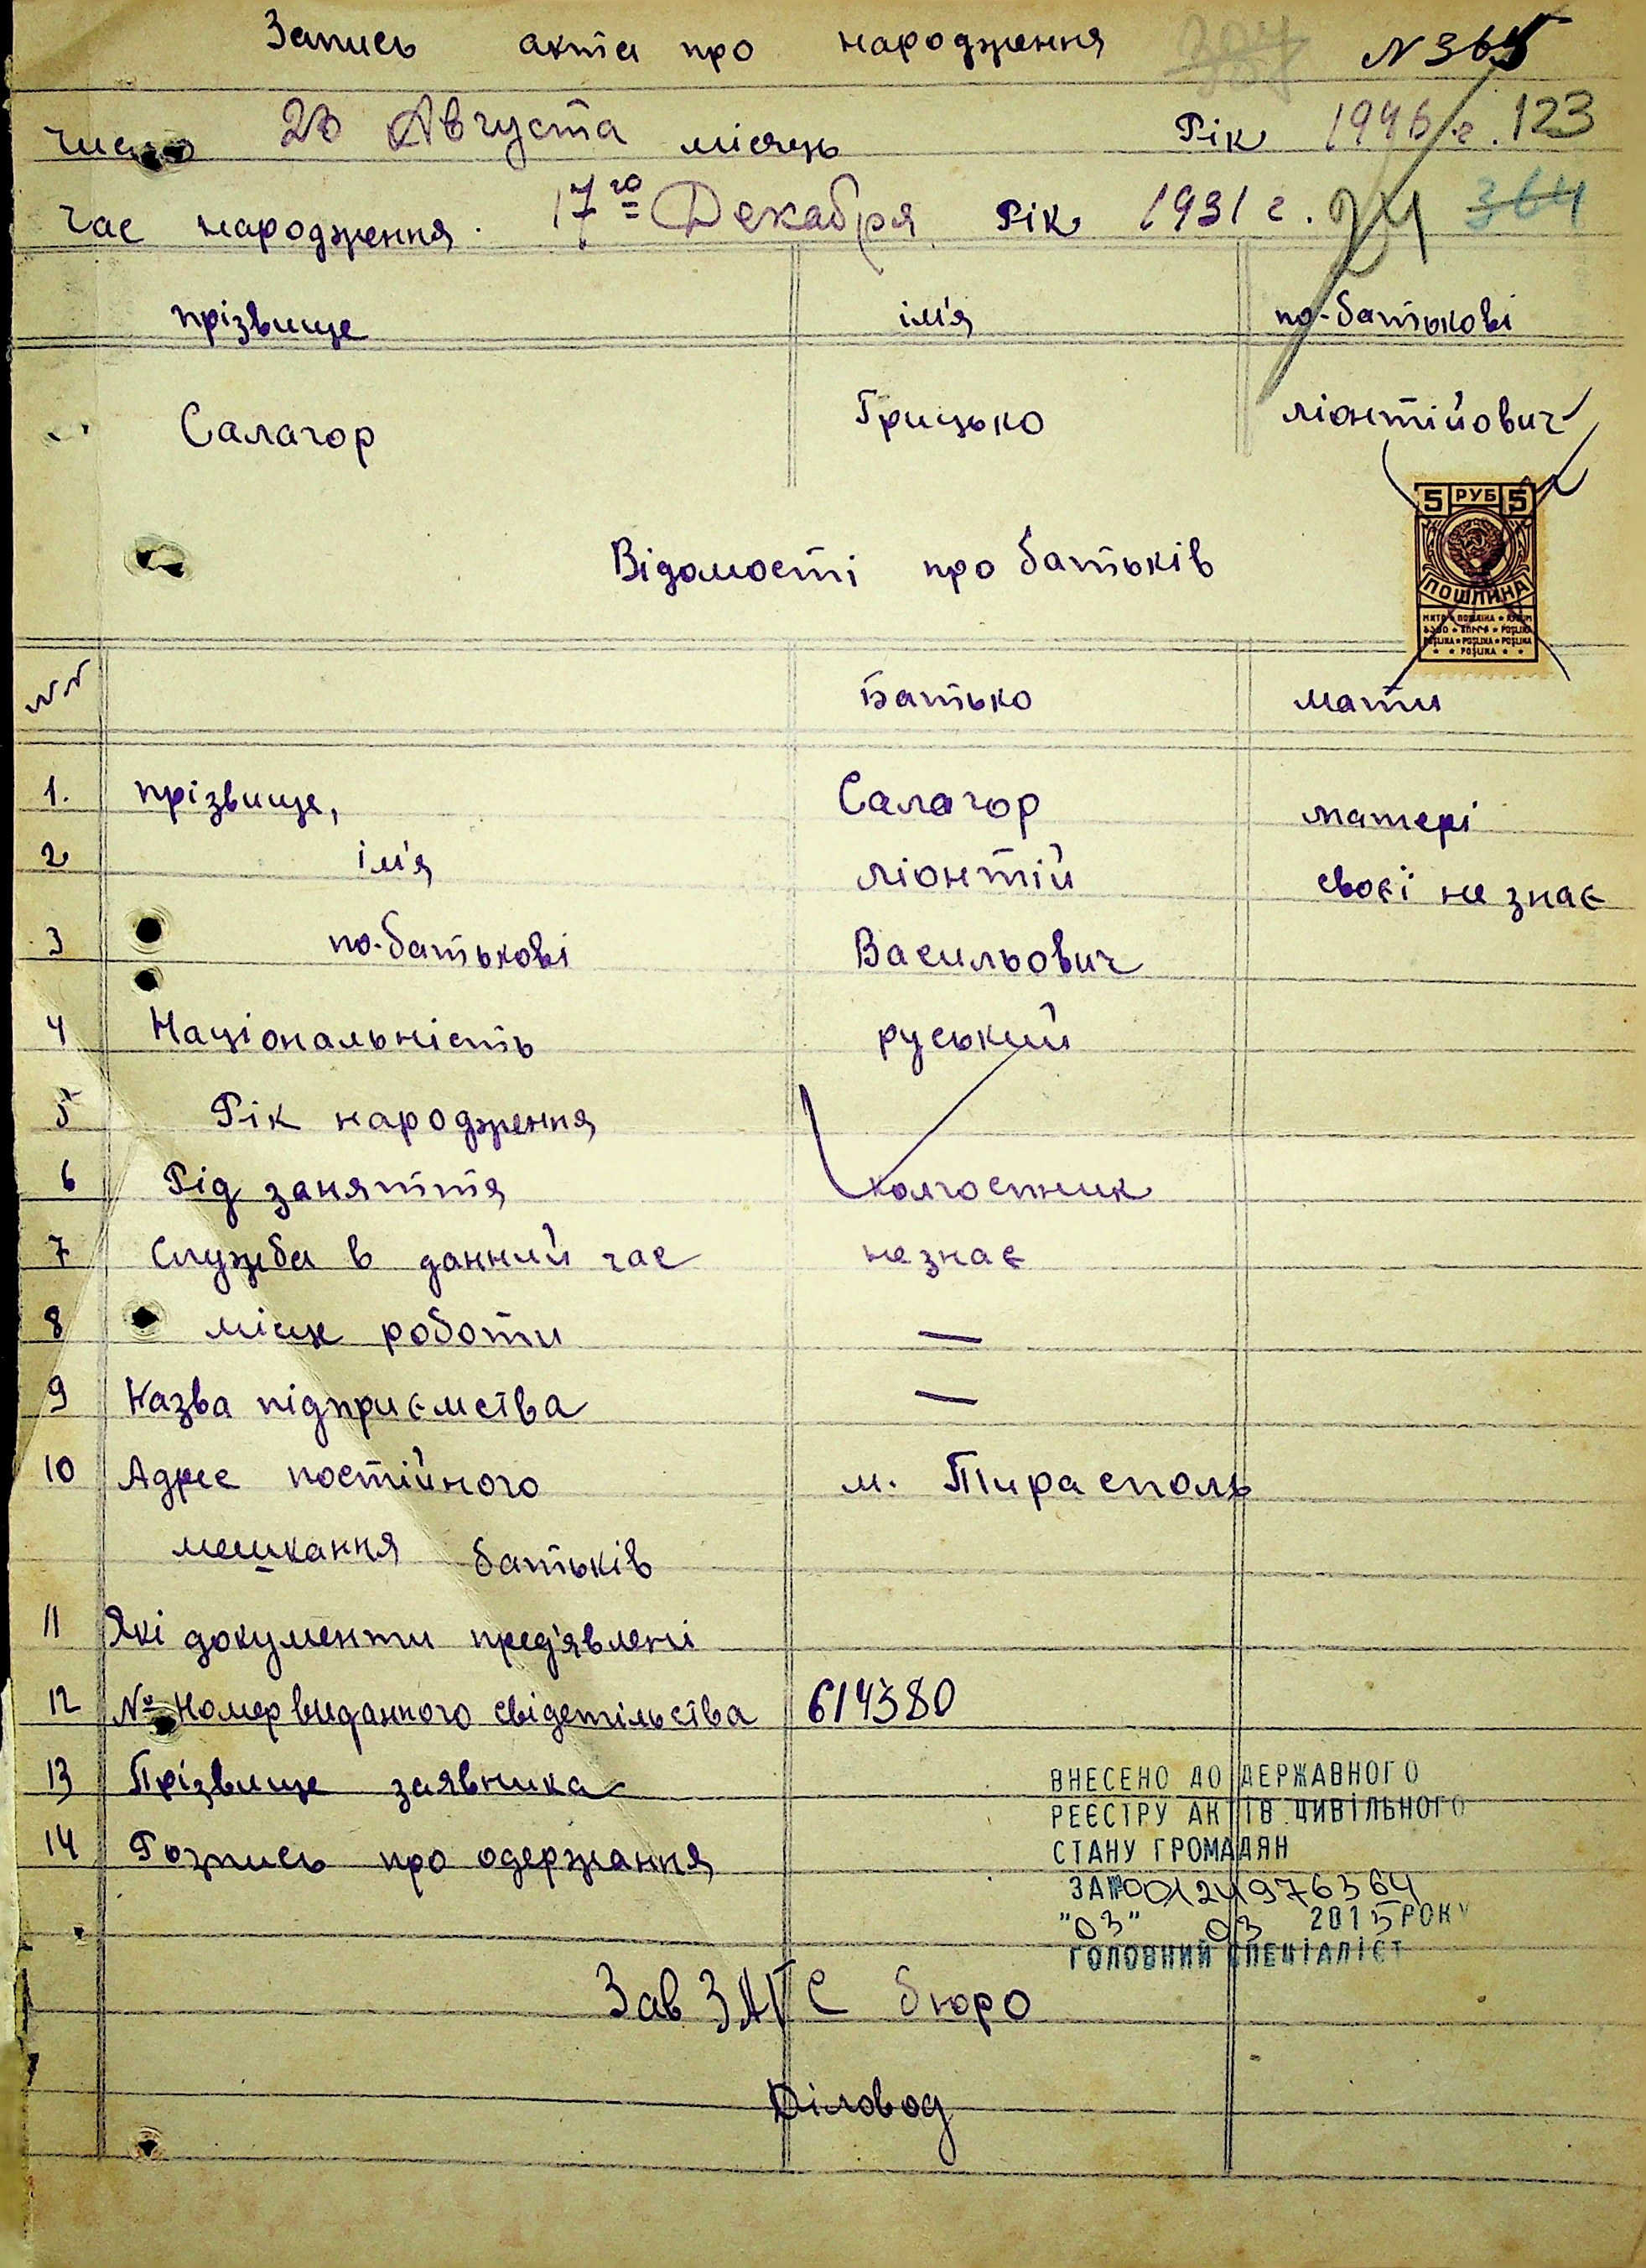 Запись акта про народження N 365
число Августа місяць Рік 1946 г. 123
час народження 17го Декабря Рік 1931 г. 24 364
прізвище ім'я по-батькові
Салагор Грицько Ліонтійович
5 РУБ 5
ПОШЛИНА
Відомості про батьків
NN Батько мати
1. прізвище, Салагор матері
2 ім'я Ліонтій своєї не знає
3 по-батькові Васильович
4 Національність руський
5 Рік народження
6 Рід заняття колгоспник
7 Служба в данний час не знає
8 місце роботи —
9 Назва підприємства —
10 Адрес постійного м. Тирасполь
мешкання батьків
11 Які документи пред'явлени
12 № Номер виданного свідетільства 614380
13 Прізвище заявника
14 Розпись про одержання
ВНЕСЕНО ДО ДЕРЖАВНОГО
РЕЄСТРУ АКТІВ ЦИВІЛЬНОГО
СТАНУ ГРОМАДЯН
ЗА № 00124976364
"03" 03 2015 РОКУ
ГОЛОВНИЙ СПЕЦІАЛІСТ
Зав ЗАГС бюро
Діловод